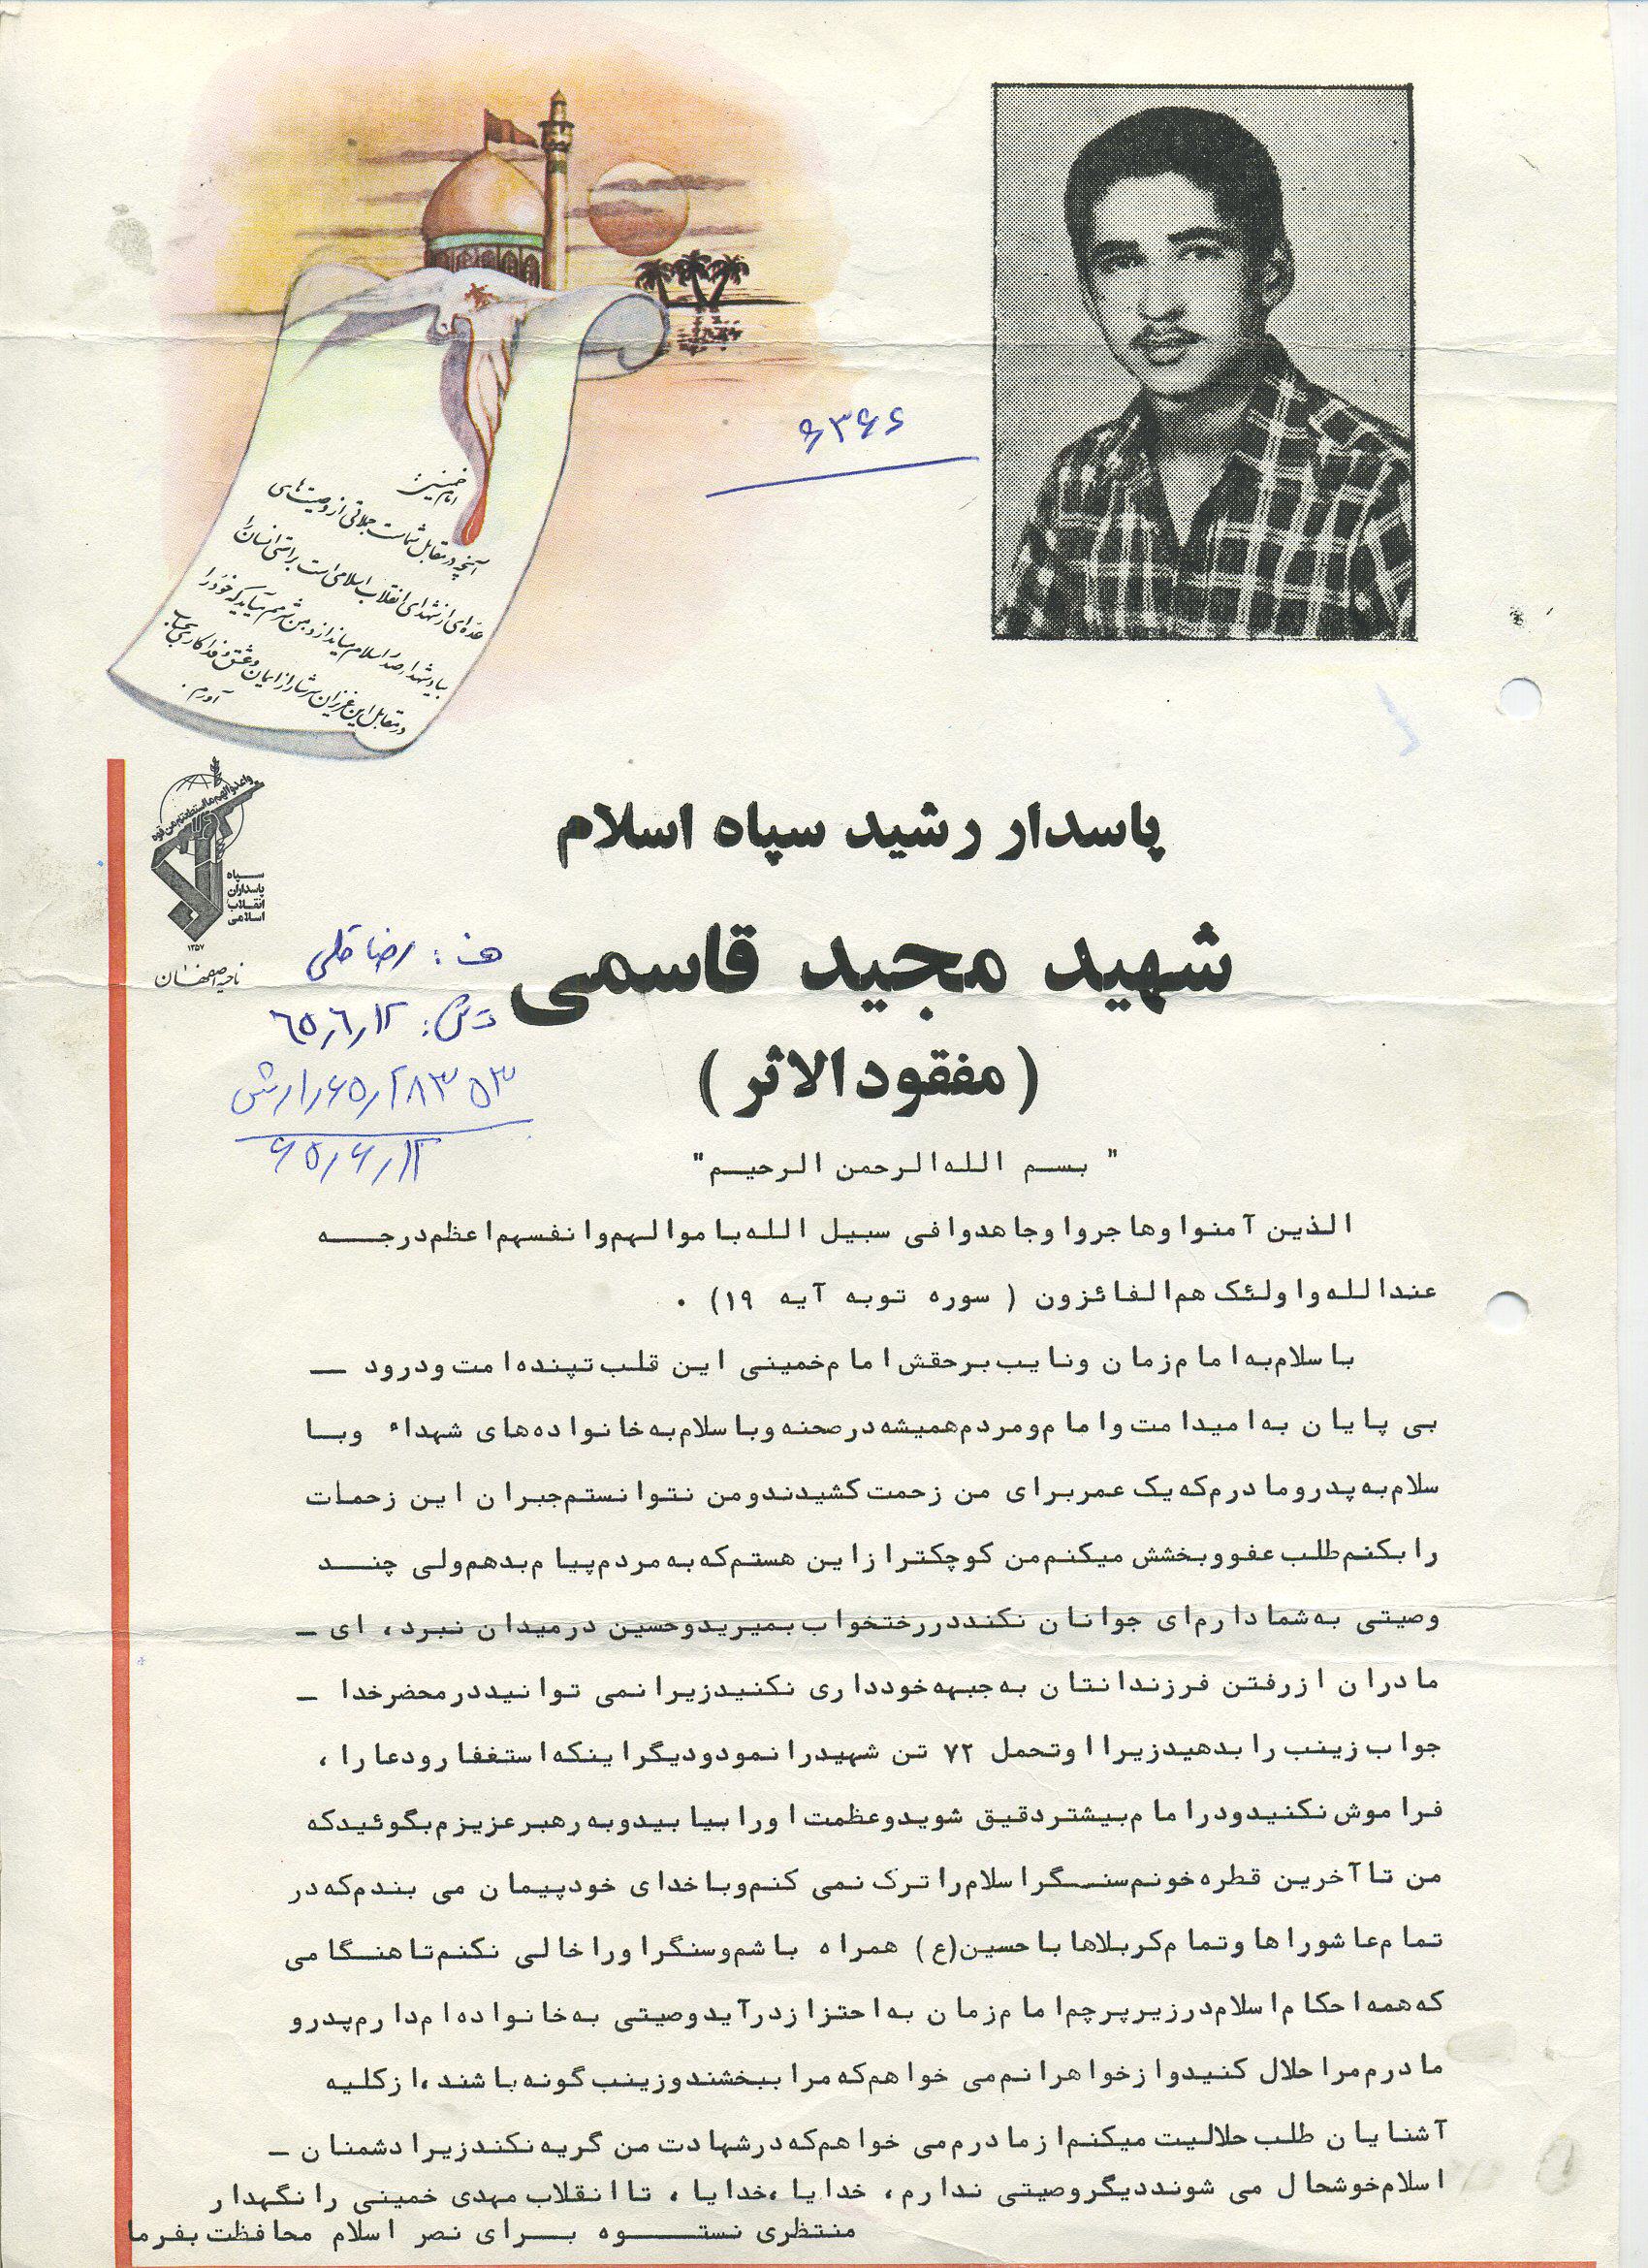 امام خمینی:
آنچه در مقابل شماست جملاتی از وصیت‌های
عده‌ای از شهدای انقلاب اسلامی است براستی انسان را
بیاد شهدا صدر اسلام میاندازد و من شرمم میآید که خود را
در مقابل این عزیزان سرشار از ایمان و عشق و فداکاری بحساب
آورم.
۶۳۶۶
واعدوا لهم ما استطعتم من قوه
سپاه
پاسداران
انقلاب
اسلامی
۱۳۵۷
ناحیه اصفهان
پاسدار رشید سپاه اسلام
شهید مجید قاسمی
(مفقودالاثر)
ف: رضاقلی
ت ش: ۶۵٫۶٫۱۲
۶۵٫۶٫۱۲
" بسم الله الرحمن الرحیم "
الذین آمنوا وهاجروا وجاهدوا فی سبیل الله باموالهم وانفسهم اعظم درجه
عندالله واولئک هم الفائزون ( سوره توبه آیه ۱۹) .
باسلام به امام زمان ونایب برحقش امام خمینی این قلب تپنده امت ودرود ـ
بی پایان به امیدامت وامام ومردم همیشه درصحنه وباسلام به خانواده های شهداء وبا
سلام به پدرومادرم که یک عمربرای من زحمت کشیدندومن نتوانستم جبران این زحمات
رابکنم طلب عفووبخشش میکنم من کوچکترازاین هستم که به مردم پیام بدهم ولی چند
وصیتی به شمادارم ای جوانان نکنددررختخواب بمیریدوحسین درمیدان نبرد، ای ـ
مادران ازرفتن فرزندانتان به جبهه خودداری نکنیدزیرانمی توانیددرمحضرخدا ـ
جواب زینب رابدهیدزیرااوتحمل ۷۲ تن شهیدرانمودودیگراینکه استغفارودعارا،
فراموش نکنیدودرامام بیشتردقیق شویدوعظمت اورابیابیدوبه رهبرعزیزم بگوئیدکه
من تاآخرین قطره خونم سنگراسلام راترک نمی کنم وباخدای خودپیمان می بندم که در
تمام عاشوراهاوتمام کربلاهاباحسین(ع) همراه باشم وسنگراوراخالی نکنم تاهنگامی
که همه احکام اسلام درزیرپرچم امام زمان به احتزازدرآیدوصیتی به خانواده ام دارم پدرو
مادرم مراحلال کنیدوازخواهرانم می خواهم که مراببخشندوزینب گونه باشند،ازکلیه
آشنایان طلب حلالیت میکنم ازمادرم می خواهم که درشهادت من گریه نکندزیرادشمنان ـ
اسلام خوشحال می شونددیگروصیتی ندارم، خدایا،خدایا، تاانقلاب مهدی خمینی رانگهدار
منتظری نستوه برای نصر اسلام محافظت بفرما